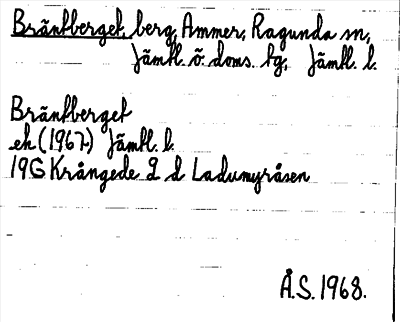 Bräntberget, berg, Ammer, Ragunda sn,
Jämtl. ö. doms. tg, Jämtl. l.
Bräntberget
ek (1967) Jämtl. l.
19G Krångede 2 d Ladumyråsen
Å.S. 1968.